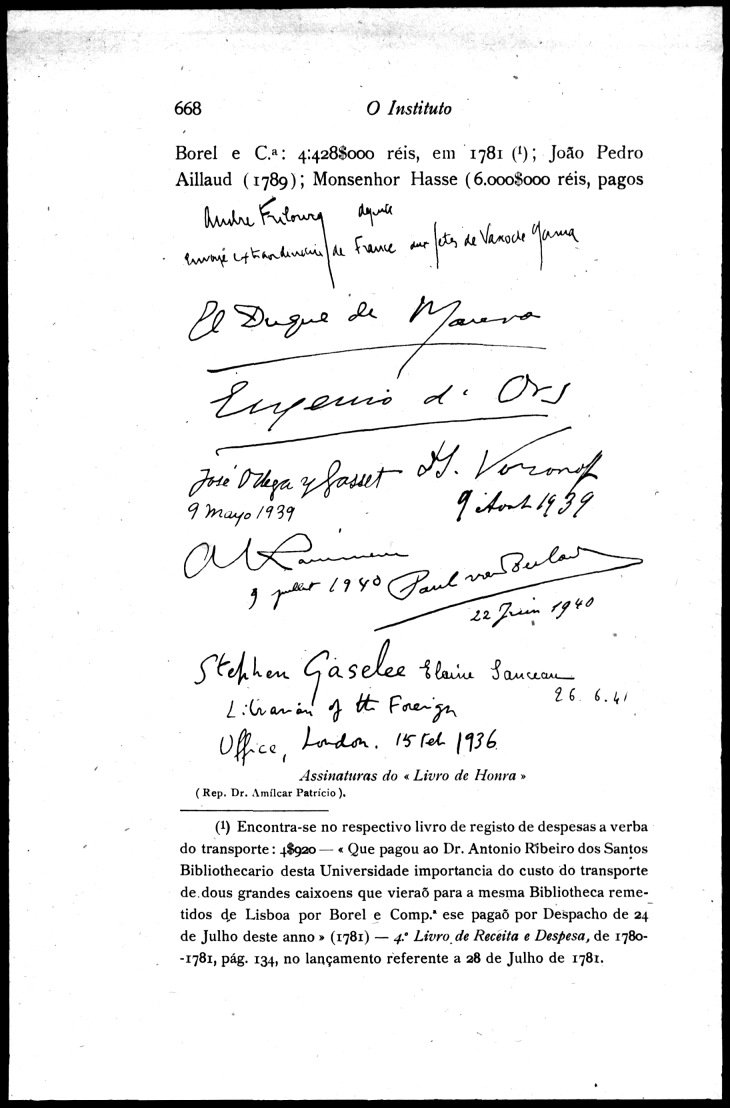 668 O Instituto
Borel e C.ª: 4:428$000 réis, em 1781 (¹); João Pedro
Aillaud (1789); Monsenhor Hasse (6.000$000 réis, pagos
André Fribourg député
envoyé extraordinaire de France aux fetes de Vasco de Gama
El Duque de Maura
Eugenio d'Ors
José Ortega y Gasset S. Voronoff
9 Mayo 1939 9 Aout 1939
9 juillet 1940 Paul van
22 Juin 1940
Stephen Gaselee Elaine Sanceau
Librarian of the Foreign 26.6.41
Office, London. 15 Feb 1936
Assinaturas do «Livro de Honra»
(Rep. Dr. Amílcar Patrício).
(1) Encontra-se no respectivo livro de registo de despesas a verba
do transporte: 4$920 — « Que pagou ao Dr. Antonio Ribeiro dos Santos
Bibliothecario desta Universidade importancia do custo do transporte
de dous grandes caixoens que vieraõ para a mesma Bibliotheca reme-
tidos de Lisboa por Borel e Comp.ª ese pagaõ por Despacho de 24
de Julho deste anno » (1781) — 4.º Livro de Receita e Despesa, de 1780-
-1781, pág. 134, no lançamento referente a 28 de Julho de 1781.